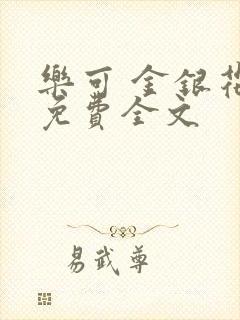 樂可 金銀花
免費全文
易武尊